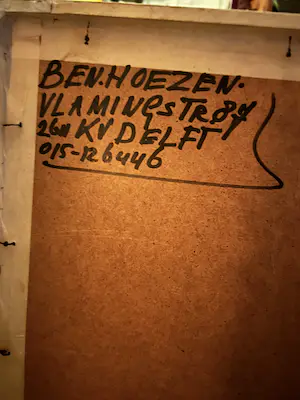 BEN.HOEZEN.
VLAMINGSTR 84
2611 KV DELFT
015-126446